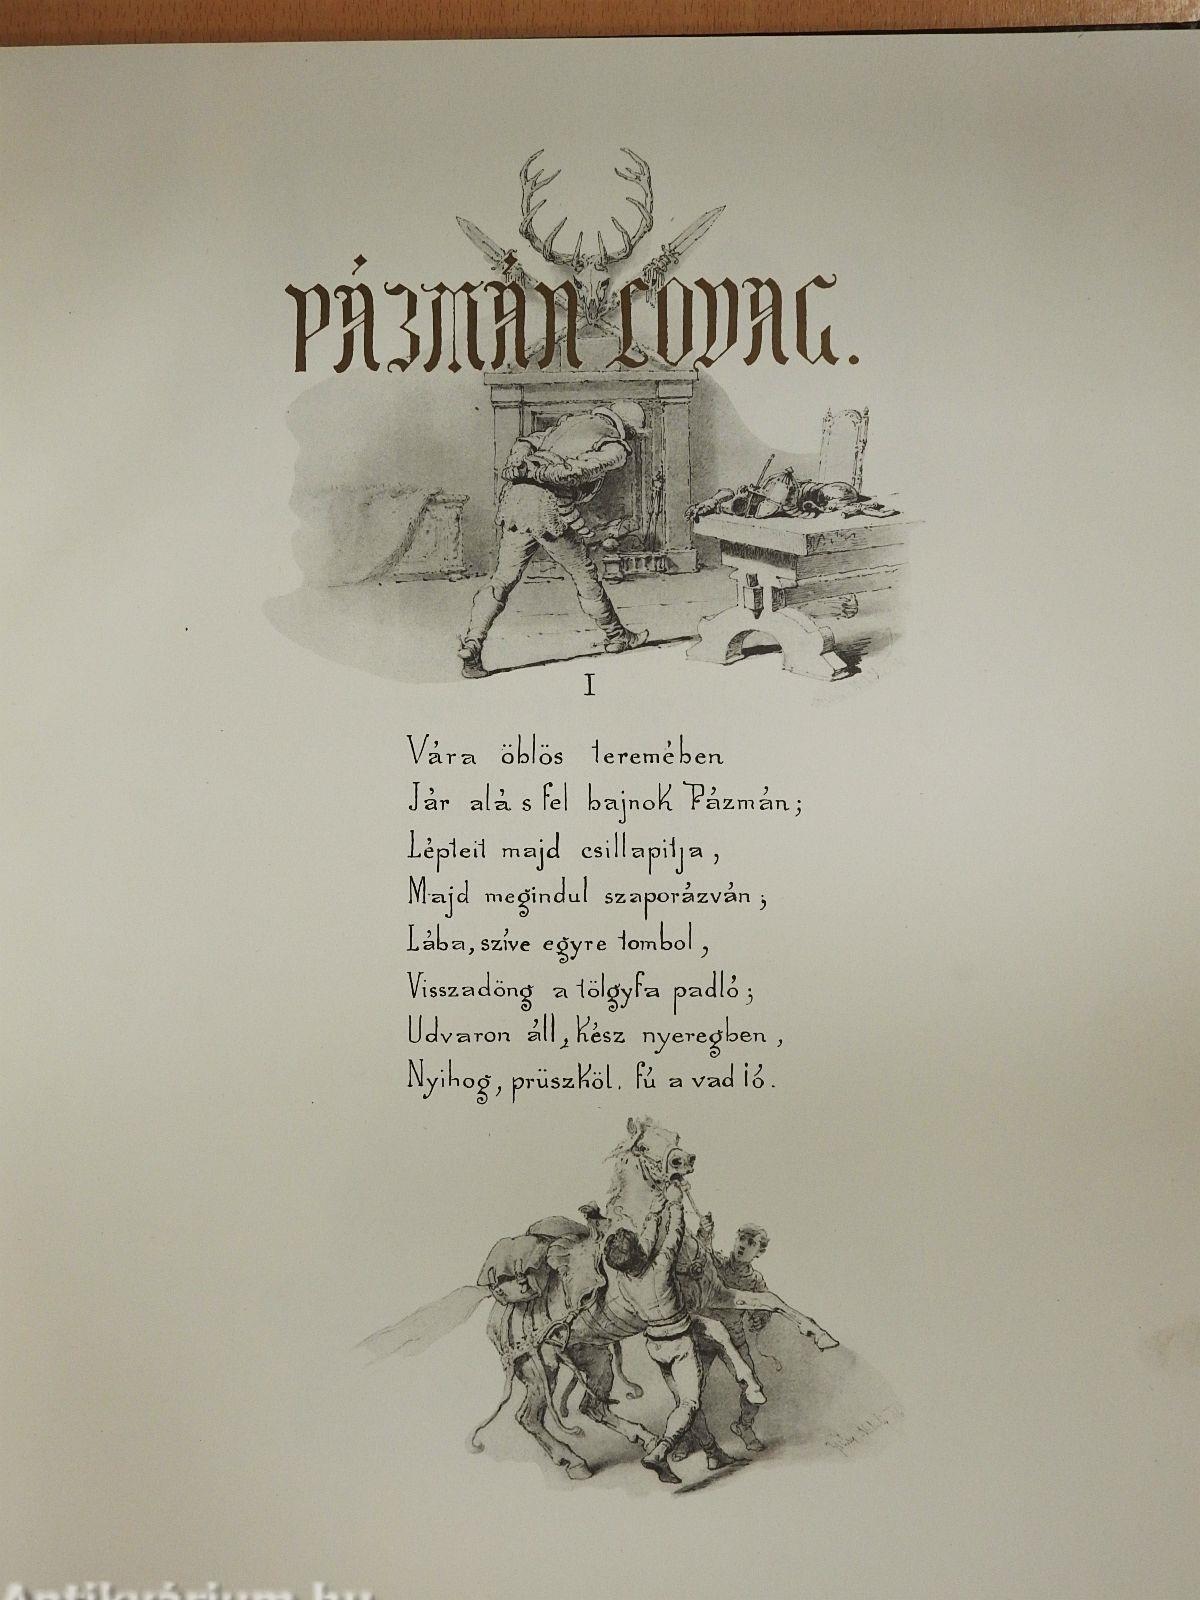 PÁZMÁN LOVAG.
I
Vára öblös teremében
Jár alá s fel bajnok Pázmán;
Lépteit majd csillapitja,
Majd megindul szaporázván;
Lába, szíve egyre tombol,
Visszadöng a tölgyfa padló;
Udvaron áll, kész nyeregben,
Nyihog, prüszköl. fú a vad ló.
Antikvárium.hu